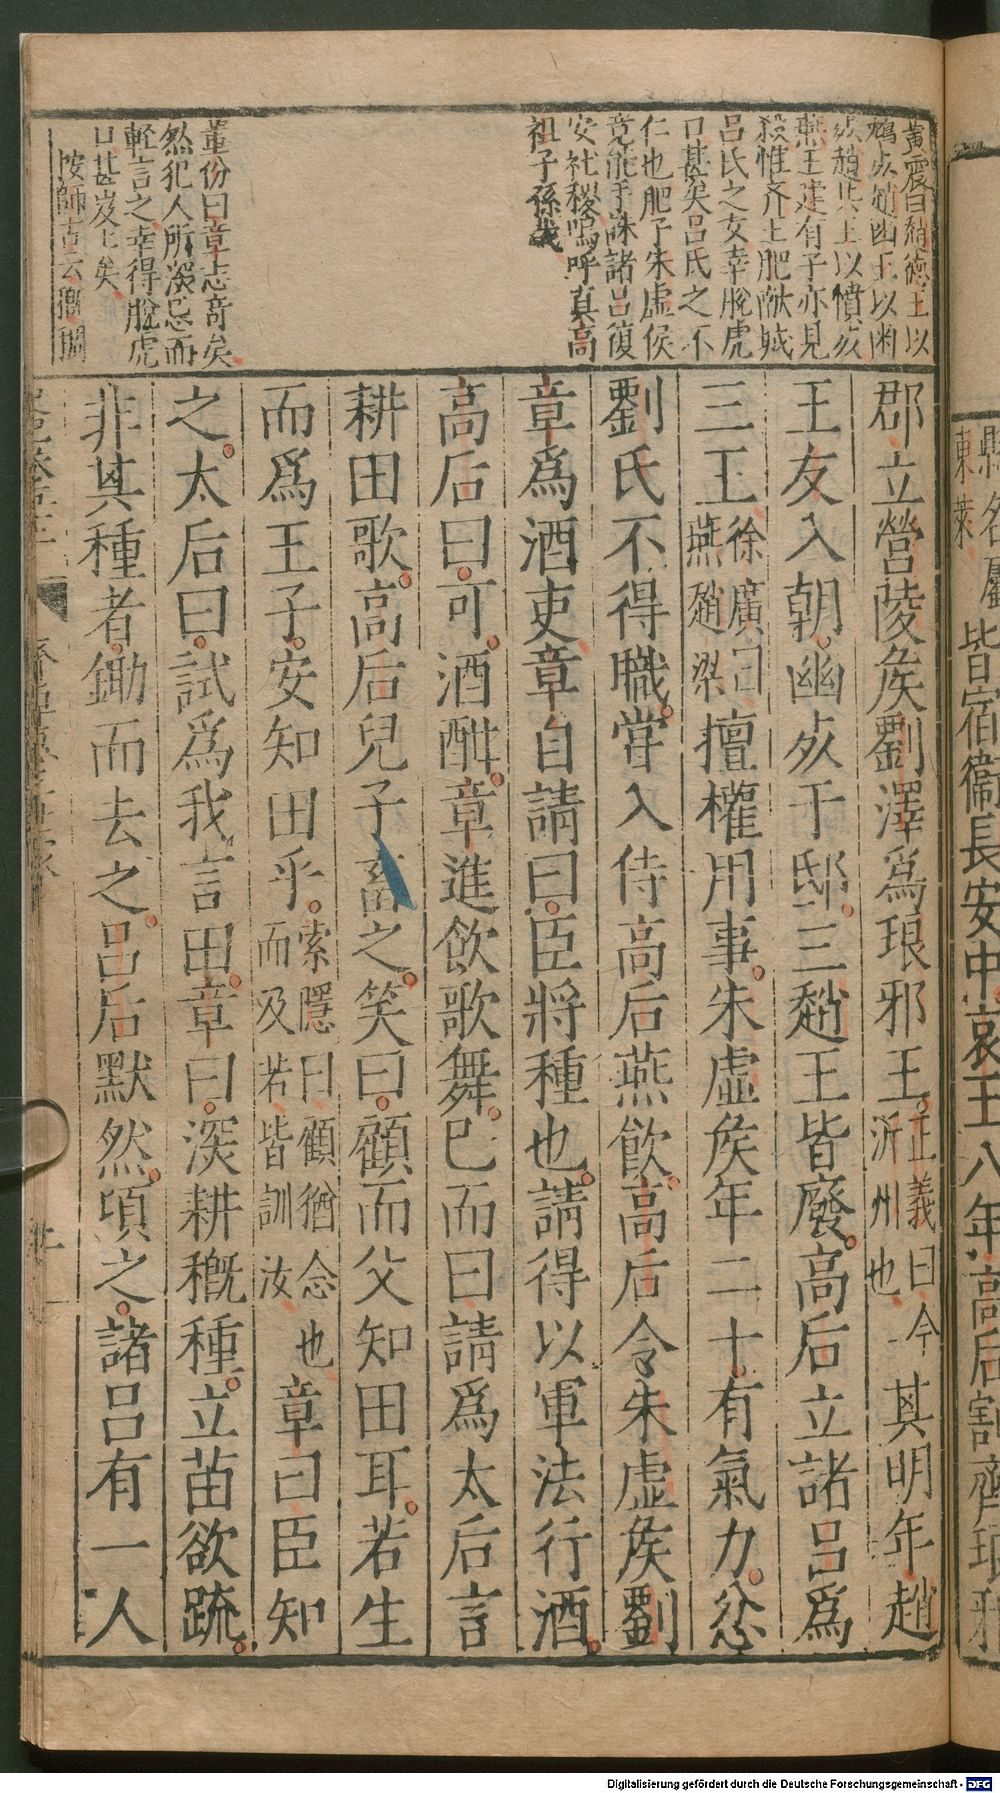 縣名屬
東萊
皆宿衞長安中哀王八年高后割齊琅邪
郡立營陵矦劉澤爲琅邪王
正義曰今
沂州也
其明年趙
王友入朝幽㱙于邸三趙王皆廢高后立諸呂爲
三王
徐廣曰
燕趙梁
擅權用事朱虛矦年二十有氣力忿
劉氏不得職嘗入侍高后燕飲高后令朱虛矦劉
章爲酒吏章自請曰臣將種也請得以軍法行酒
高后曰可酒酣章進飲歌舞已而曰請爲太后言
耕田歌高后兒子畜之笑曰顧而父知田耳若生
而爲王子安知田乎
索隱曰顧猶念也
而及若皆訓汝
章曰臣知
之太后曰試爲我言田章曰深耕穊種立苗欲疏
非其種者鋤而去之呂后默然頃之諸呂有一人
黃震曰趙
德王以
㱙趙幽王以幽
㱙趙共王以憤㱙
燕王建有子亦見
殺惟齊王肥獻城
呂氏之女幸脫虎
口甚矣呂氏之不
仁也肥子朱虛侯
竟能手誅諸呂復
安社稷嗚呼真高
祖子孫哉
董份曰章志竒矣
然犯人所深忌而
輕言之幸得脫虎
口甚岌岌矣
按師古云穊稠
Digitalisierung gefördert durch die Deutsche Forschungsgemeinschaft - DFG